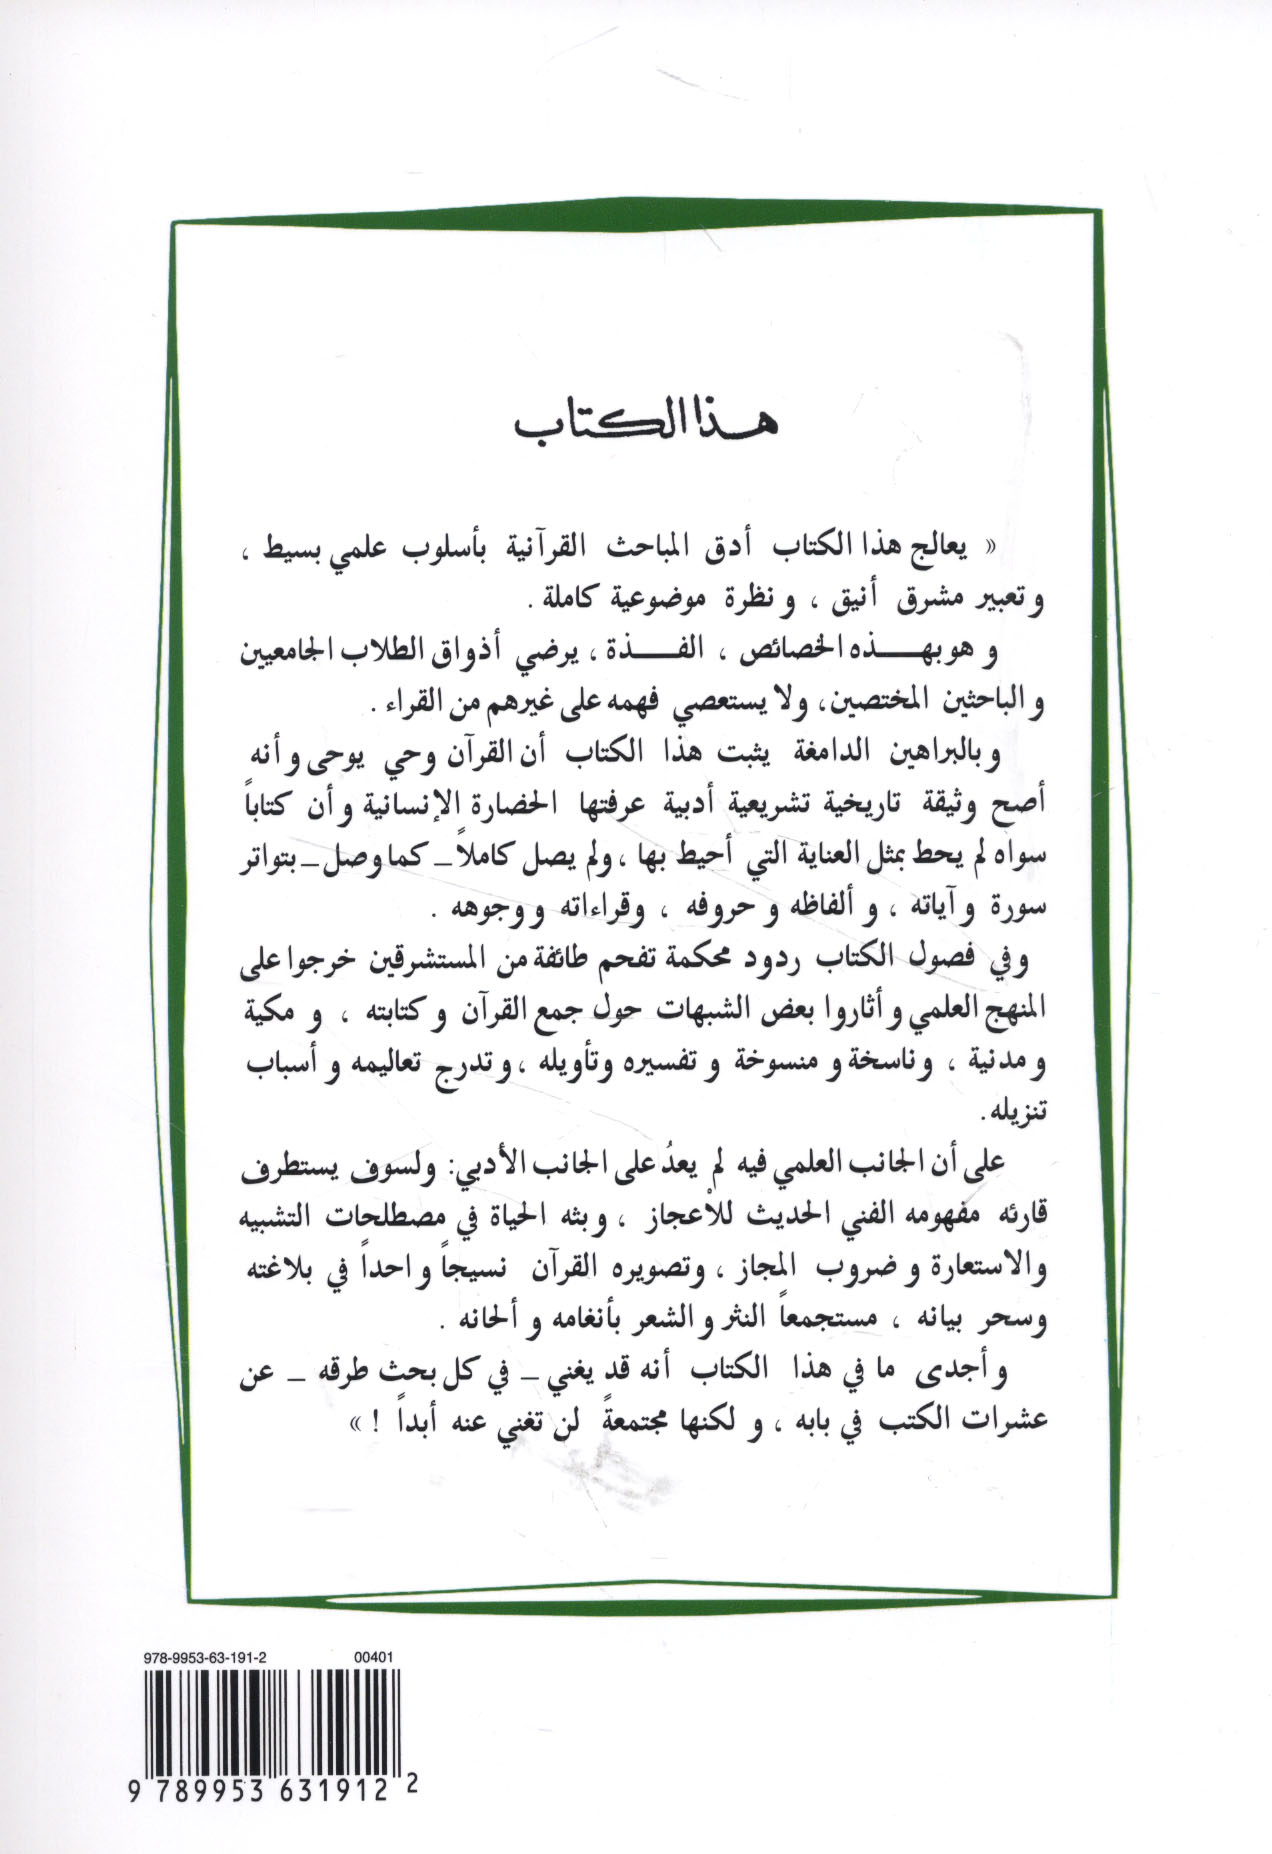 هذا الكتاب
« يعالج هذا الكتاب أدق المباحث القرآنية بأسلوب علمي بسيط ،
وتعبير مشرق أنيق ، ونظرة موضوعية كاملة .
وهو بهذه الخصائص ، الفذة ، يرضي أذواق الطلاب الجامعيين
والباحثين المختصين، ولا يستعصي فهمه على غيرهم من القراء .
وبالبراهين الدامغة يثبت هذا الكتاب أن القرآن وحي يوحى وأنه
أصح وثيقة تاريخية تشريعية أدبية عرفتها الحضارة الإنسانية وأن كتاباً
سواه لم يحط بمثل العناية التي أحيط بها ، ولم يصل كاملاً _ كما وصل _ بتواتر
سورة وآياته ، وألفاظه وحروفه ، وقراءاته ووجوهه .
وفي فصول الكتاب ردود محكمة تفحم طائفة من المستشرقين خرجوا على
المنهج العلمي وأثاروا بعض الشبهات حول جمع القرآن وكتابته ، ومكية
ومدنية ، وناسخة ومنسوخة وتفسيره وتأويله ، وتدرج تعاليمه وأسباب
تنزيله.
على أن الجانب العلمي فيه لم يعدُ على الجانب الأدبي: ولسوف يستطرف
قارئه مفهومه الفني الحديث للأعجاز ، وبثه الحياة في مصطلحات التشبيه
والاستعارة وضروب المجاز ، وتصويره القرآن نسيجاً واحداً في بلاغته
وسحر بيانه ، مستجمعاً النثر والشعر بأنغامه وألحانه .
وأجدى ما في هذا الكتاب أنه قد يغني _ في كل بحث طرقه _ عن
عشرات الكتب في بابه ، ولكنها مجتمعةً لن تغني عنه أبداً ! »
978-9953-63-191-2 00401
9 789953 631912 2